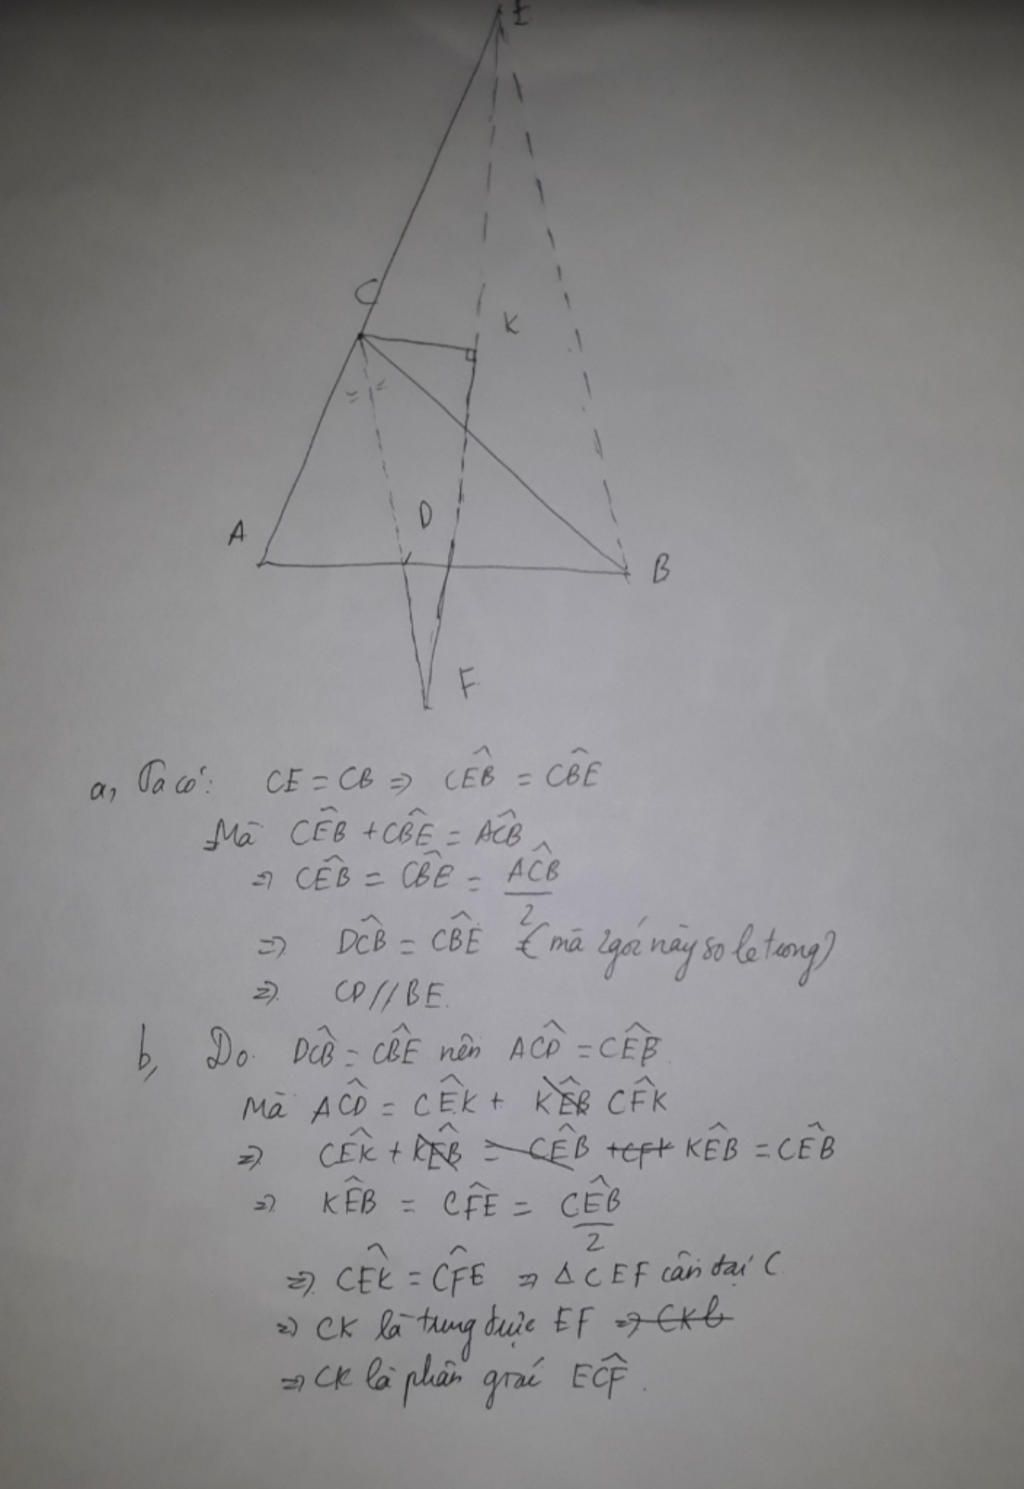 E
C
K
A
D
B
F
a, Ta có: CE = CB => CÊB = CB̂E
Mà CÊB + CB̂E = AĈB
=> CÊB = CB̂E = AĈB/2
=> DĈB = CB̂E (mà 2 góc này so le trong)
=> CD // BE.
b, Do DĈB = CB̂E nên AĈD = CÊB
Mà AĈD = CÊK + KÊB CF̂K
=> CÊK + KÊB = CÊB + CFK KÊB = CÊB
=> KÊB = CF̂E = CÊB/2
=> CÊK = CF̂E => Δ CEF cân tại C
=> CK là trung trực EF => CK l
=> CK là phân giác EĈF.